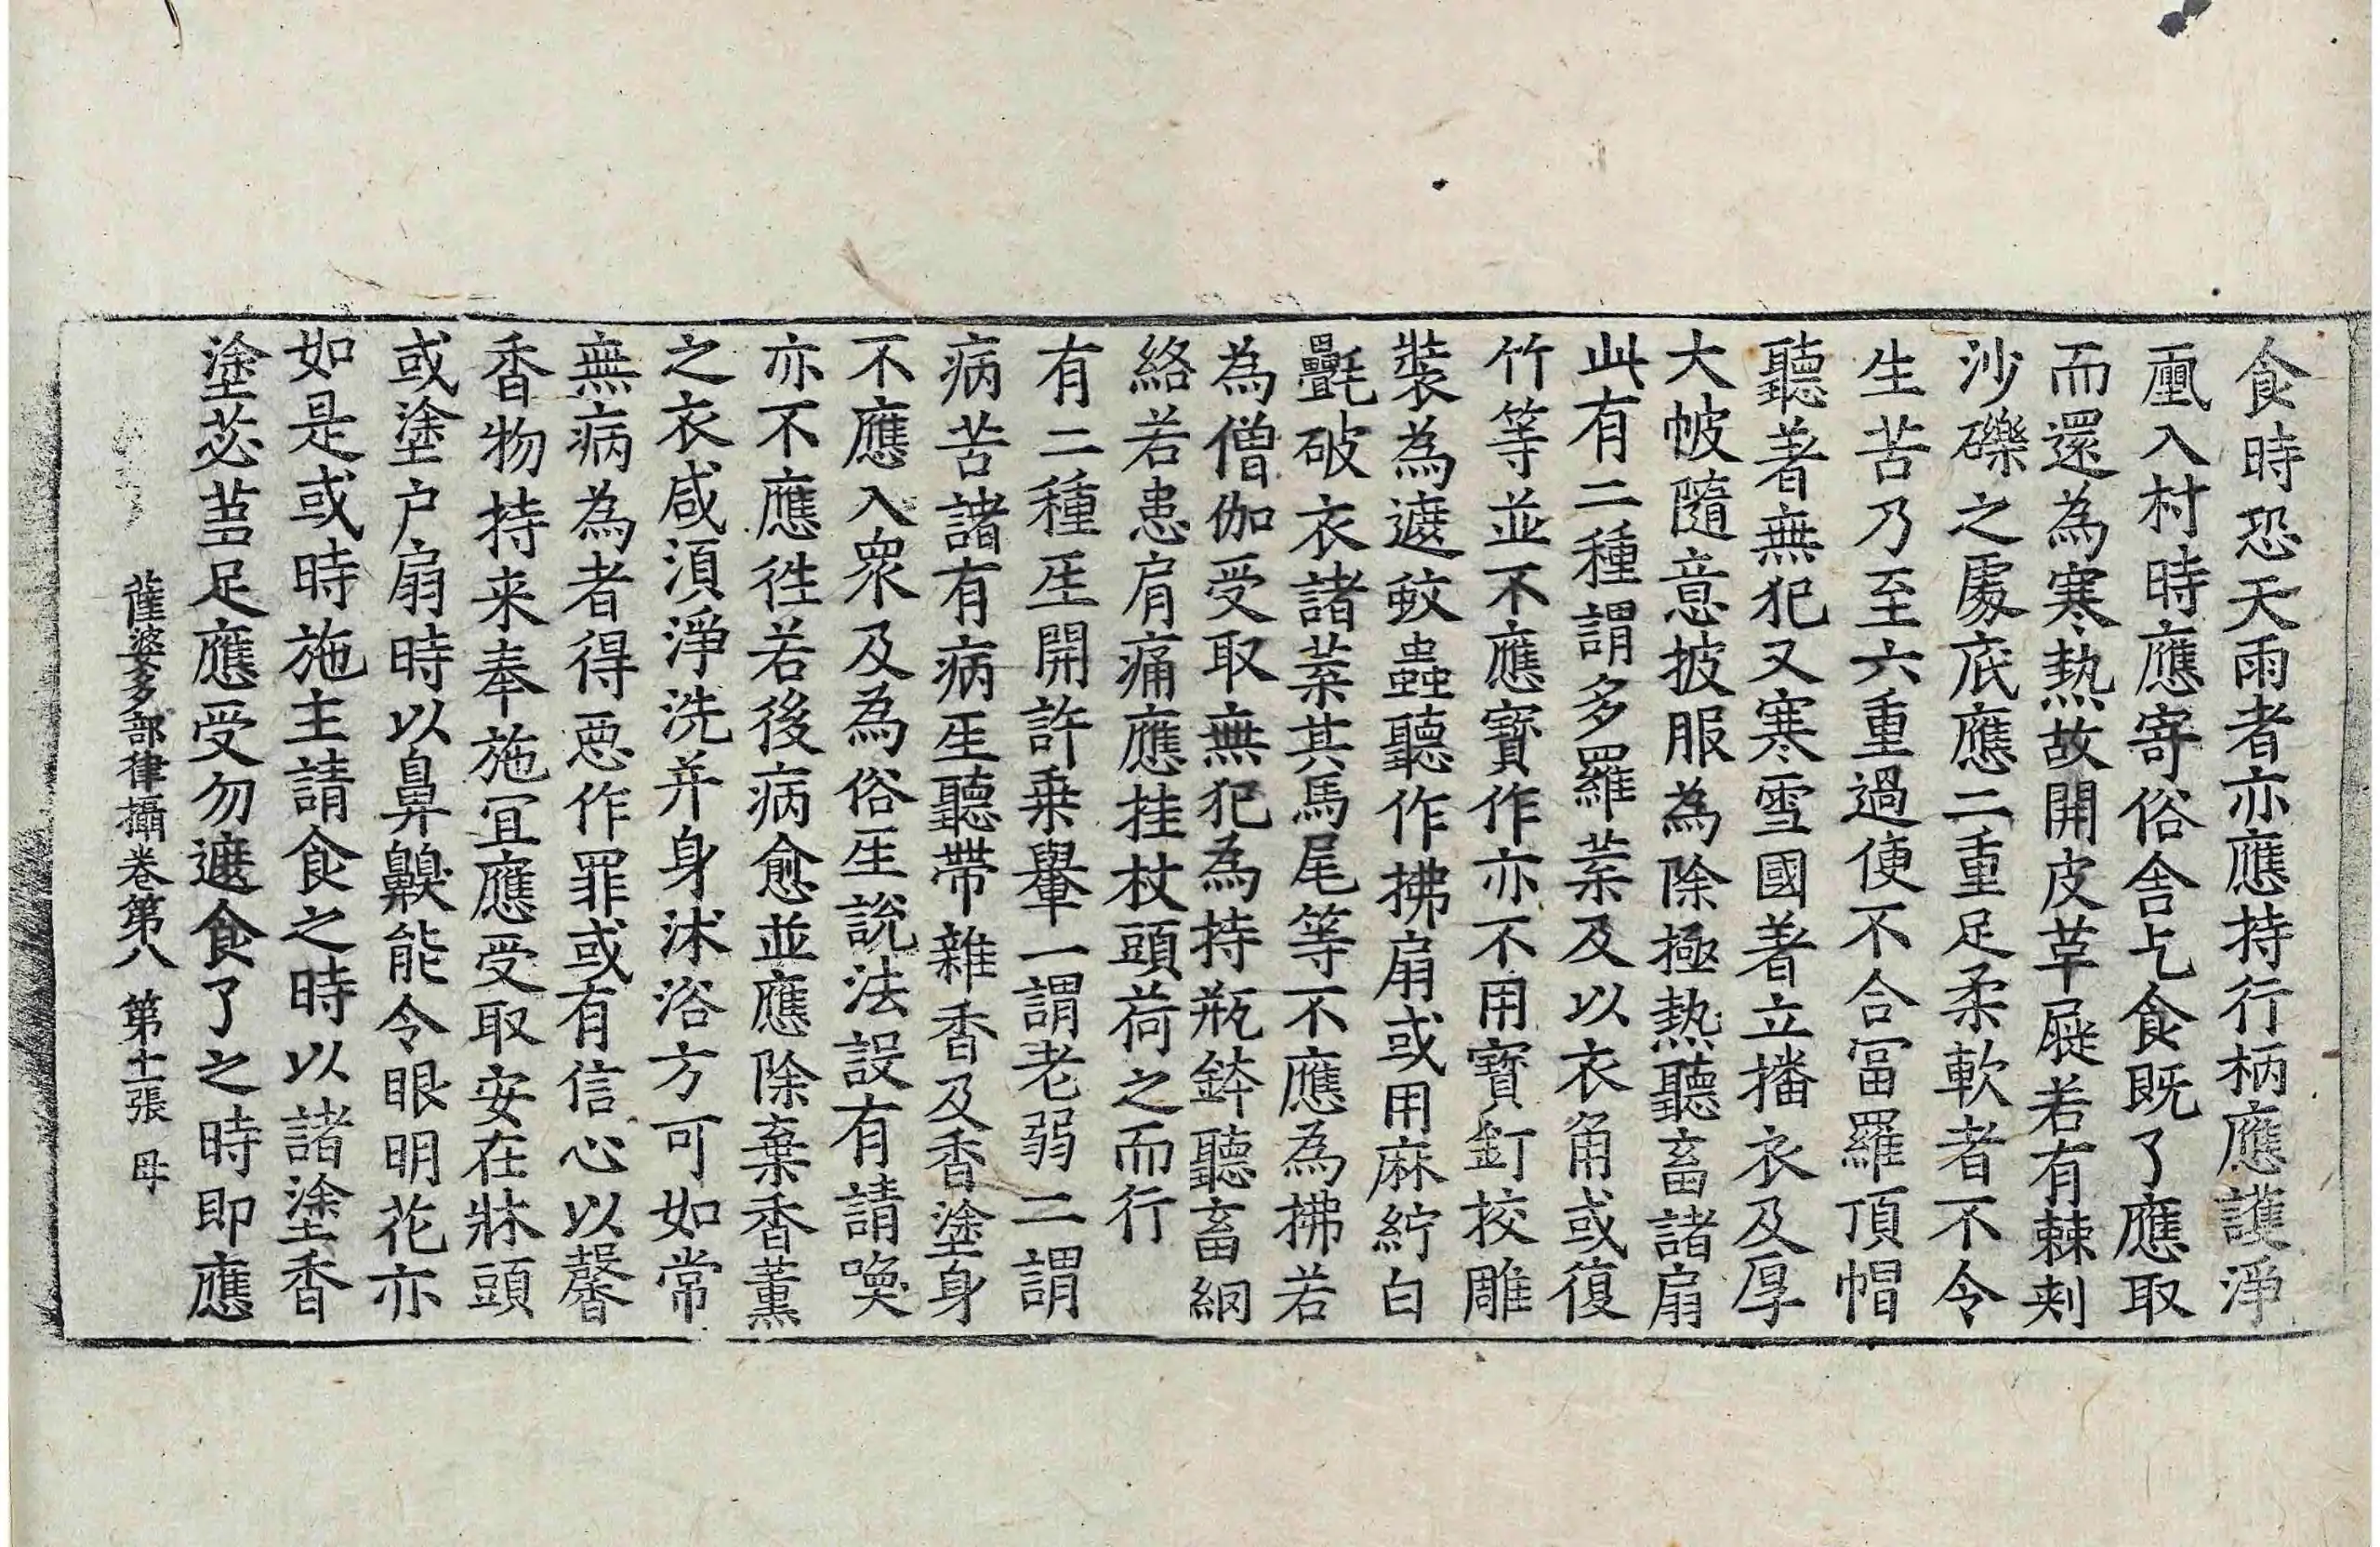 食時恐天雨者亦應持行柄應護淨
𠪨入村時應寄俗舍乞食既了應取
而還為寒熱故開皮草屣若有棘刺
沙礫之處底應二重足柔軟者不令
生苦乃至六重過便不合冨羅頂帽
聽著無犯又寒雪國著立播衣及厚
大帔隨意披服為除極熱聽畜諸扇
此有二種謂多羅葉及以衣角或復
竹等並不應寶作亦不用寶釘挍雕
裝為遮蚊蟲聽作拂扇或用麻紵白
㲲破衣諸葉其馬尾等不應為拂若
為僧伽受取無犯為持瓶鉢聽畜網
絡若患肩痛應挂杖頭荷之而行
有二種𤯔開許乗轝一謂老弱二謂
病苦諸有病𤯔聽帶雜香及香塗身
不應入衆及為俗𤯔說法設有請喚
亦不應徃若後病愈並應除棄香薰
之衣咸湏淨洗并身沐浴方可如常
無病為者得𢙣作罪或有信心以馨
香物持来奉施冝應受取安在牀頭
或塗户扇時以鼻齅能令眼明花亦
如是或時施主請食之時以諸塗香
塗苾蒭足應受勿遮食了之時即應
薩婆多部律攝卷第八 第十二張 母